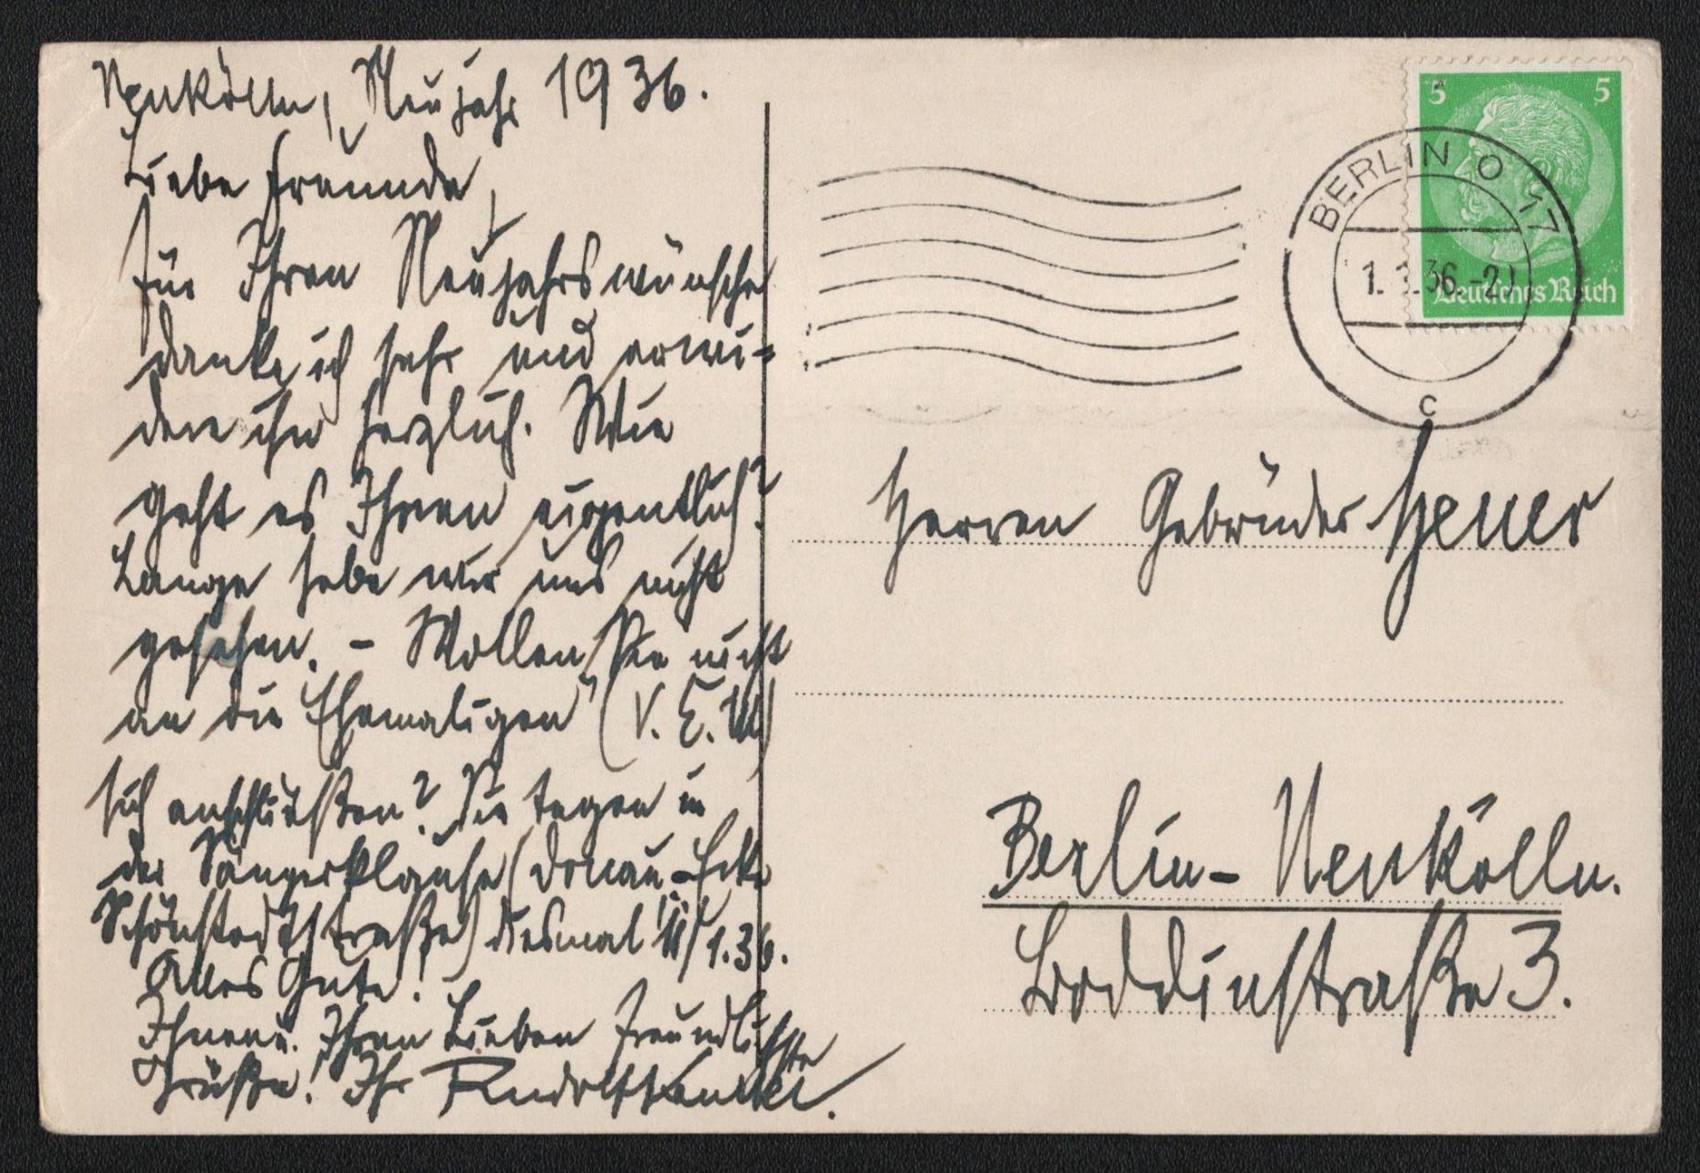 Neukölln, Neujahr 1936.
Liebe Freunde,
Für Ihren Neujahrswunsch
danke ich sehr und erwi-
dere ihn herzlich. Wie
geht es Ihnen eigentlich?
Lange habe wir uns nicht
gesehen. – Wollen Sie nicht
an die „Ehemaligen" (V. E. M)
sich anschließen? Sie tagen in
der Sängerklause (Donau-Ecke
Schönstedtstraße) diesmal 11/1.36.
Alles Gute!
Ihnen u. Ihren Lieben freundlichste
Grüße! Ihr Rudolf
5 5
Deutsches Reich
BERLIN O 17
1.1.36.-2
c
Herren Gebrüder Heuer
Berlin-Neukölln.
Boddinstraße 3.